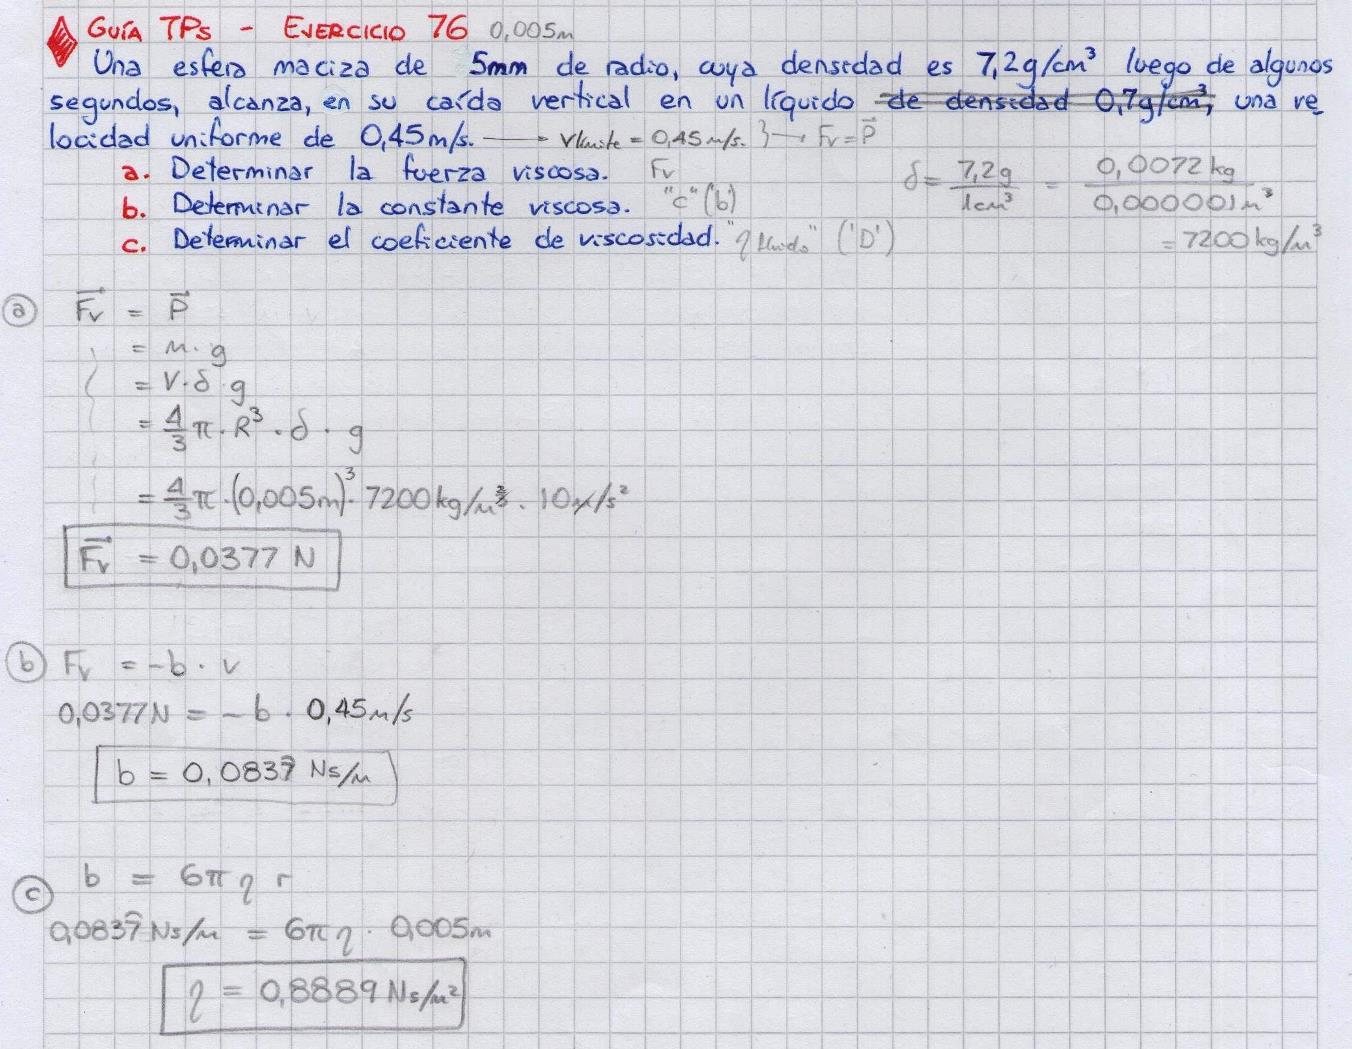 GUÍA TPs - EJERCICIO 76 0,005m
Una esfera maciza de 5mm de radio, cuya densidad es 7,2g/cm³ luego de algunos
segundos, alcanza, en su caída vertical en un líquido de densidad 0,7g/cm³, una ve
locidad uniforme de 0,45m/s. → vlimite = 0,45m/s. } → Fv = P
a. Determinar la fuerza viscosa. Fv
b. Determinar la constante viscosa. "c" (b)
c. Determinar el coeficiente de viscosidad. "η fluido" ('D')
δ = 7,2g / 1cm³ = 0,0072 kg / 0,000001m³
= 7200 kg/m³
a Fv = P
= m . g
= V . δ . g
= 4/3 π . R³ . δ . g
= 4/3 π . (0,005m)³ . 7200 kg/m³ . 10m/s²
Fv = 0,0377 N
b Fv = -b . v
0,0377N = -b . 0,45m/s
b = 0,0837̂ Ns/m
c b = 6π η r
0,0837̂ Ns/m = 6π η . 0,005m
η = 0,8889 Ns/m²